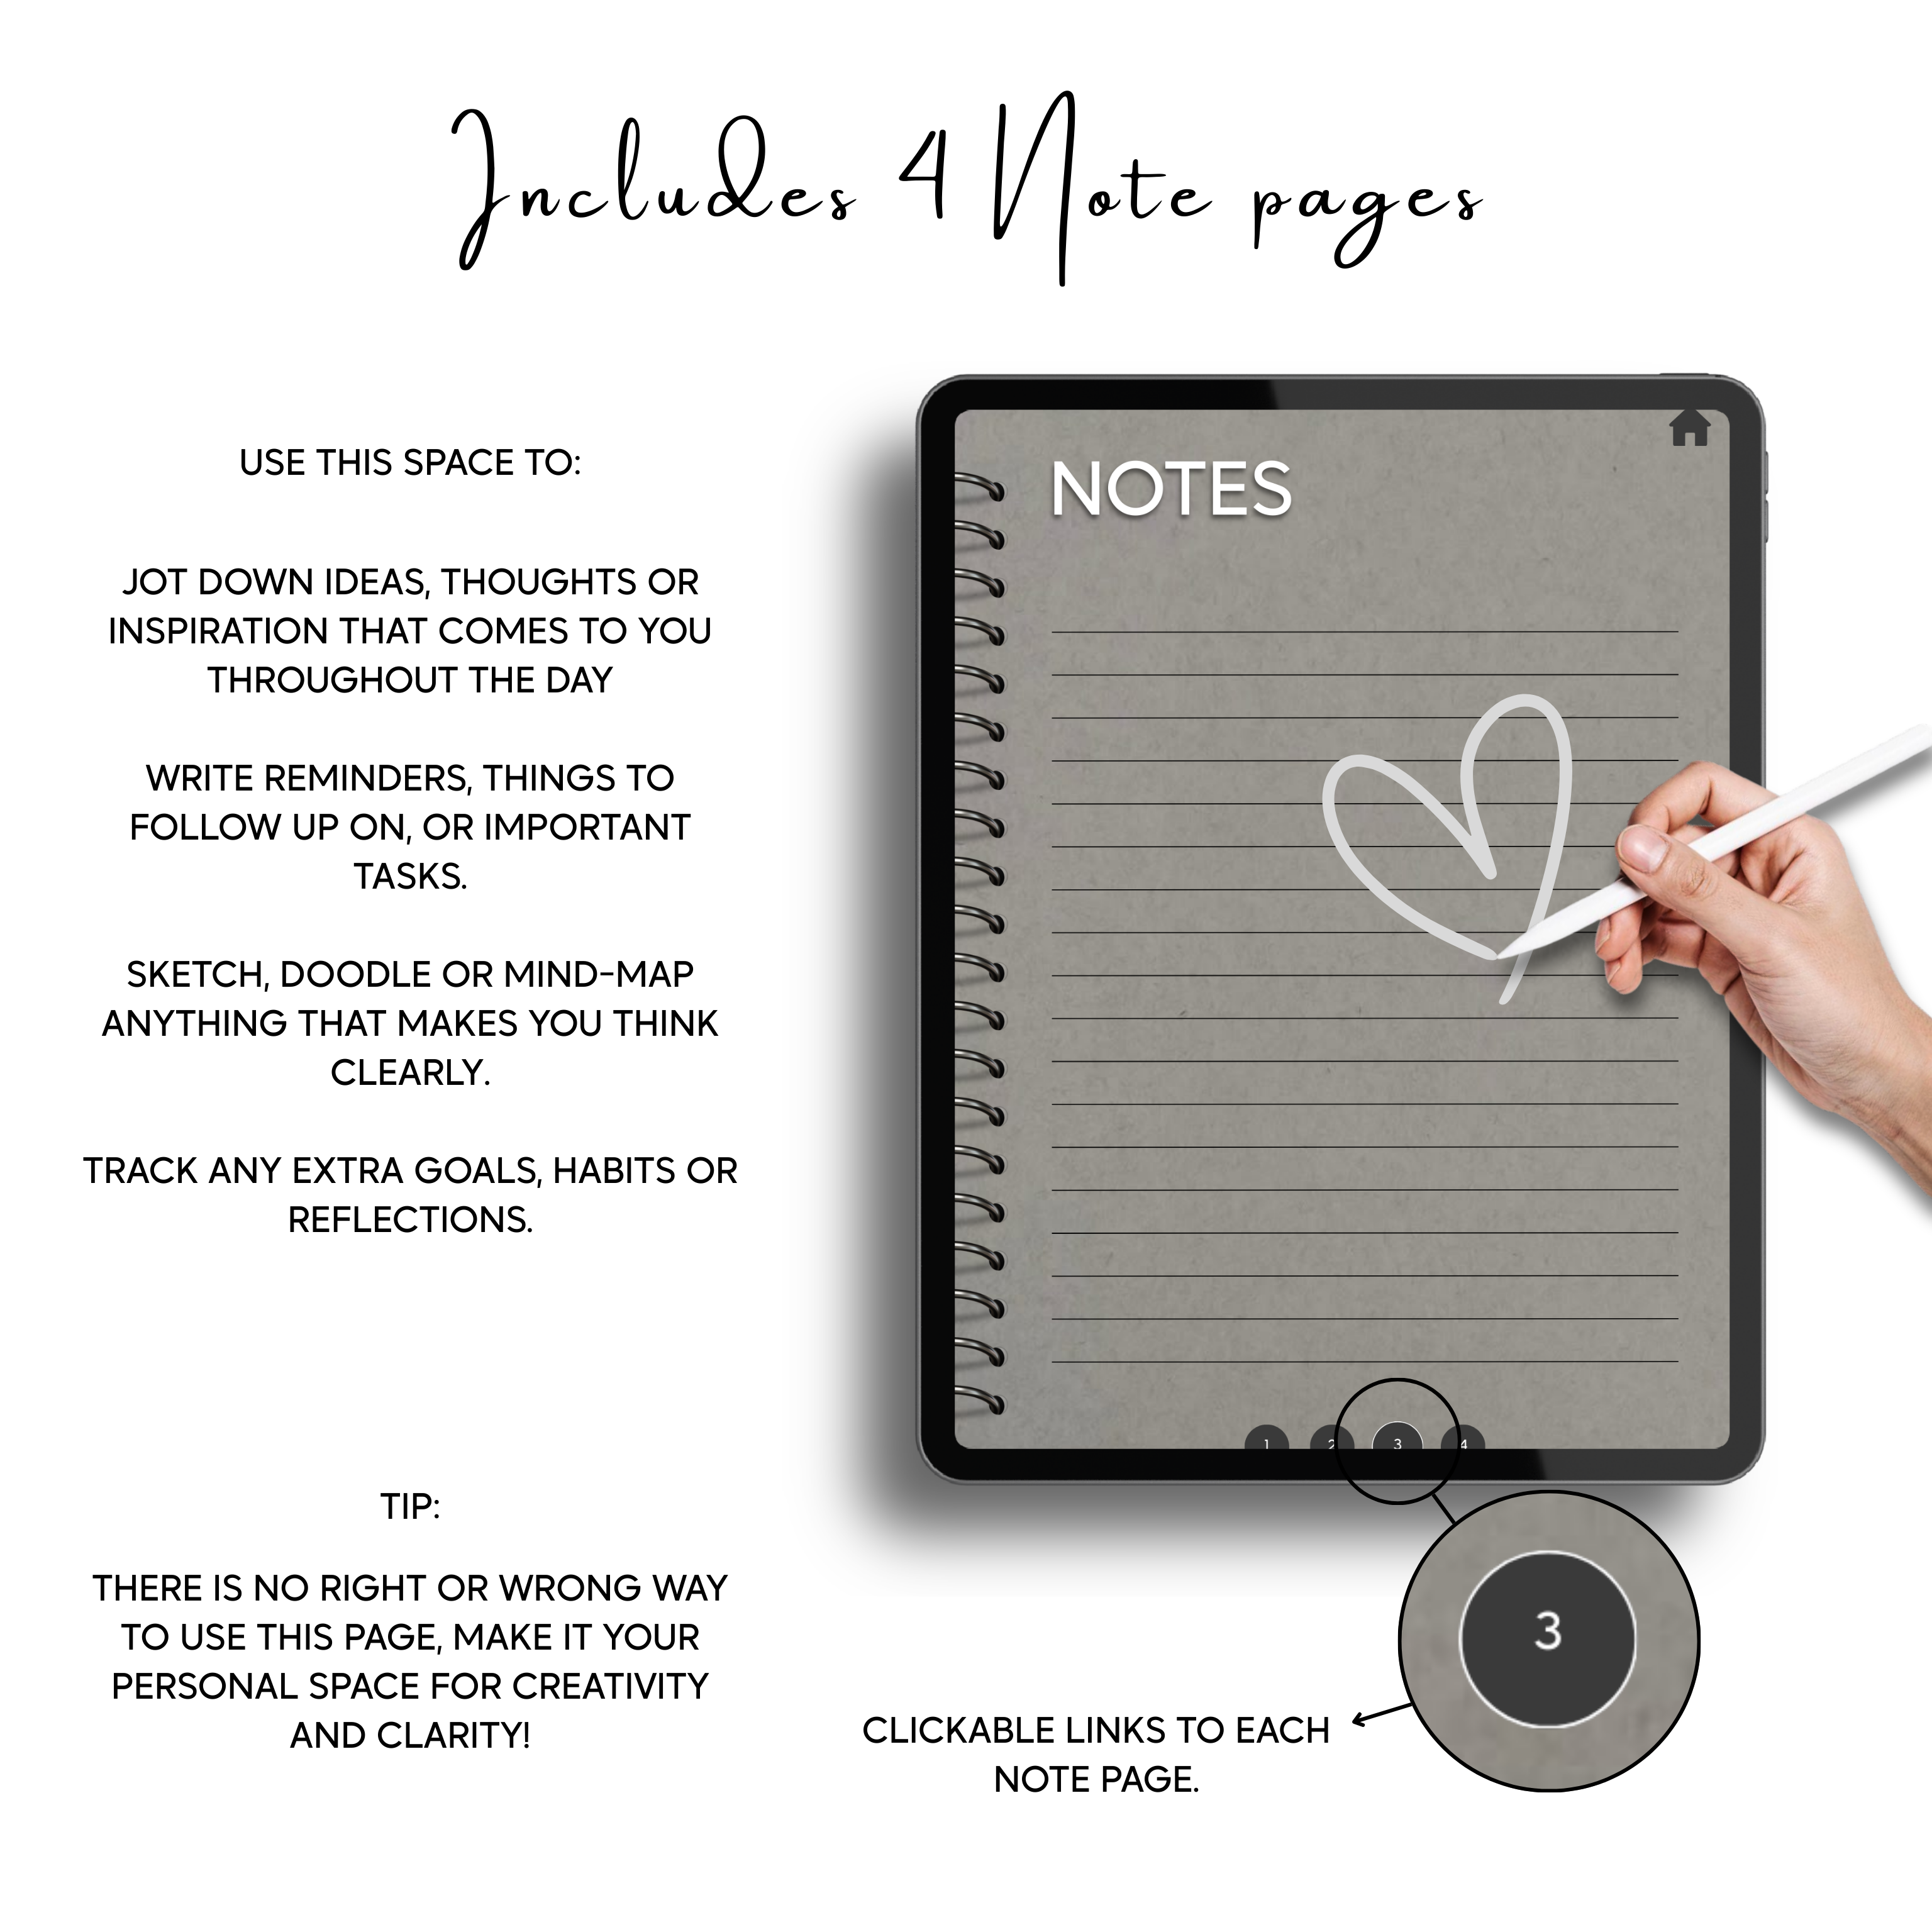 Includes 4 Note pages
USE THIS SPACE TO:
JOT DOWN IDEAS, THOUGHTS OR
INSPIRATION THAT COMES TO YOU
THROUGHOUT THE DAY
WRITE REMINDERS, THINGS TO
FOLLOW UP ON, OR IMPORTANT
TASKS.
SKETCH, DOODLE OR MIND-MAP
ANYTHING THAT MAKES YOU THINK
CLEARLY.
TRACK ANY EXTRA GOALS, HABITS OR
REFLECTIONS.
TIP:
THERE IS NO RIGHT OR WRONG WAY
TO USE THIS PAGE, MAKE IT YOUR
PERSONAL SPACE FOR CREATIVITY
AND CLARITY!
NOTES
1 2 3 4
3
CLICKABLE LINKS TO EACH
NOTE PAGE.